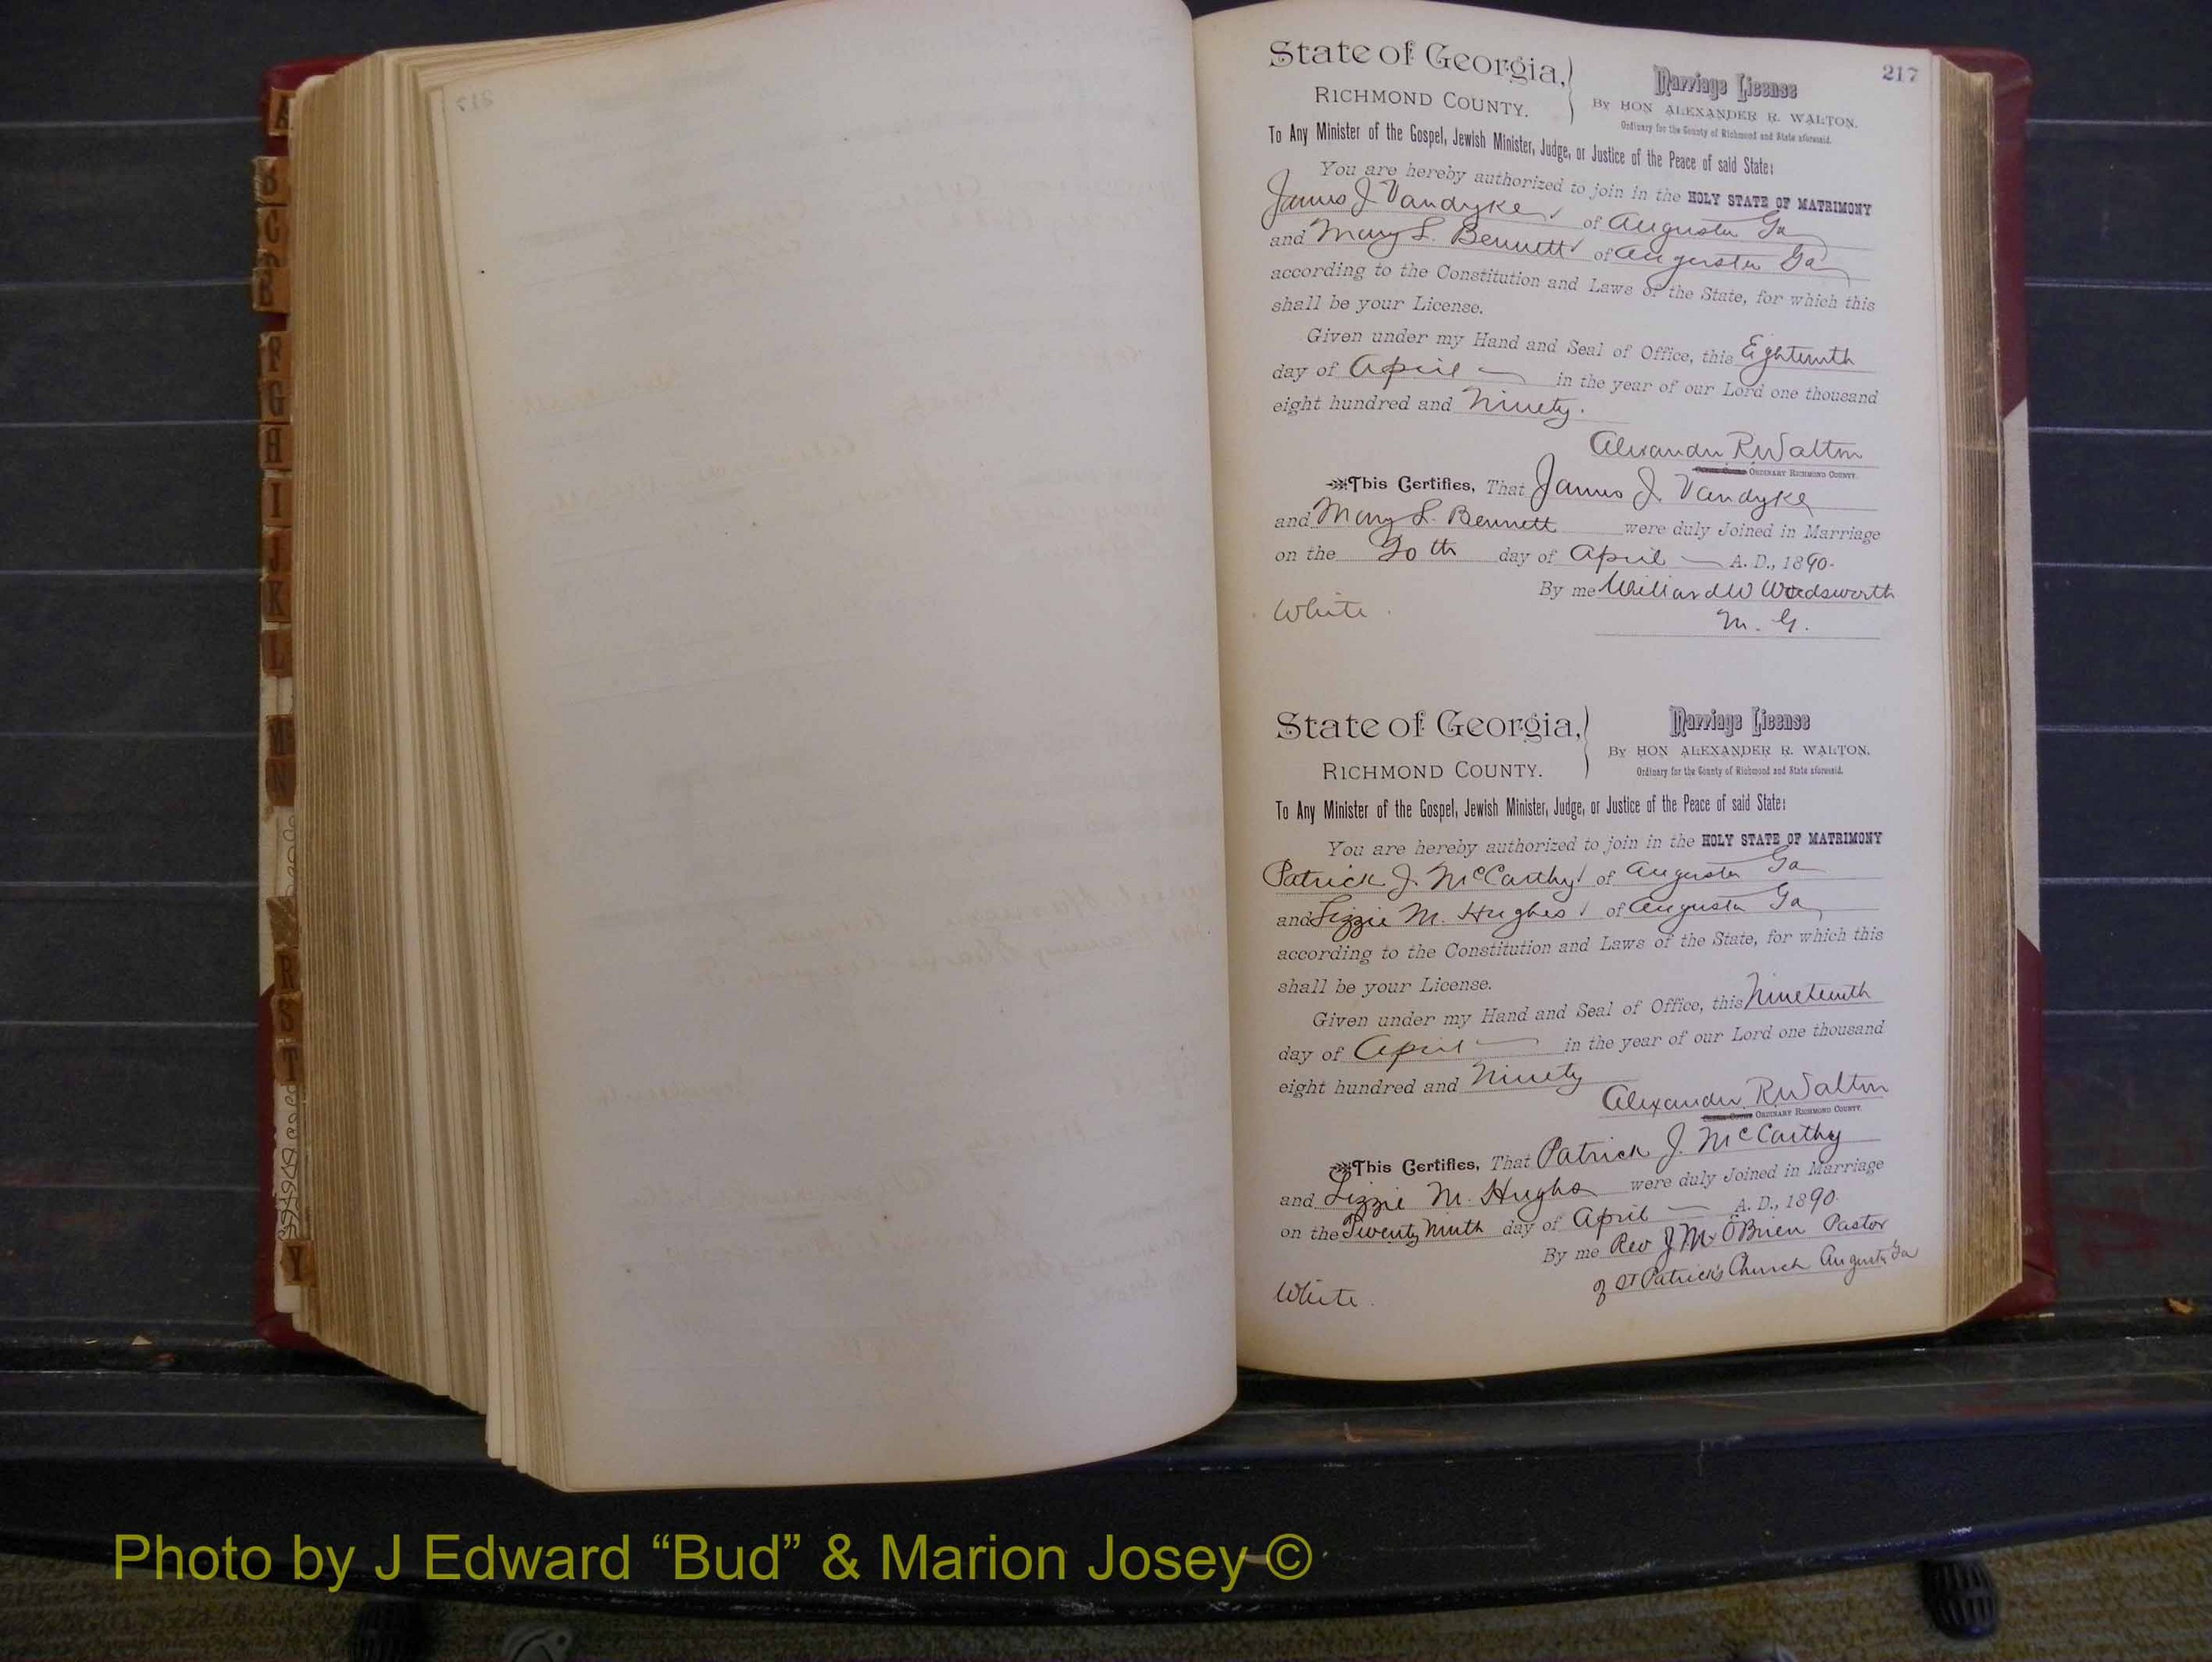 217
State of Georgia,
RICHMOND COUNTY.
Marriage License
By HON ALEXANDER R. WALTON.
Ordinary for the County of Richmond and State aforesaid.
To Any Minister of the Gospel, Jewish Minister, Judge, or Justice of the Peace of said State:
You are hereby authorized to join in the HOLY STATE OF MATRIMONY
James J Vandyke of Augusta Ga
and Mary L. Bennett of Augusta Ga
according to the Constitution and Laws of the State, for which this
shall be your License.
Given under my Hand and Seal of Office, this Eighteenth
day of April in the year of our Lord one thousand
eight hundred and Ninety.
Alexander R Walton
ORDINARY RICHMOND COUNTY.
This Certifies, That James J. Vandyke
and Mary L. Bennett were duly Joined in Marriage
on the 20th day of April A. D., 1890.
By me Willard W Wadsworth
M. G.
White.
State of Georgia,
RICHMOND COUNTY.
Marriage License
By HON ALEXANDER R. WALTON.
Ordinary for the County of Richmond and State aforesaid.
To Any Minister of the Gospel, Jewish Minister, Judge, or Justice of the Peace of said State:
You are hereby authorized to join in the HOLY STATE OF MATRIMONY
Patrick J. McCarthy of Augusta Ga
and Lizzie M. Hughes of Augusta Ga
according to the Constitution and Laws of the State, for which this
shall be your License.
Given under my Hand and Seal of Office, this Nineteenth
day of April in the year of our Lord one thousand
eight hundred and Ninety
Alexander R Walton
ORDINARY RICHMOND COUNTY.
This Certifies, That Patrick J. McCarthy
and Lizzie M. Hughes were duly Joined in Marriage
on the Twenty Ninth day of April A. D., 1890.
By me Rev J M. O'Brien Pastor
of St Patrick's Church Augusta Ga
White.
Photo by J Edward “Bud” & Marion Josey ©